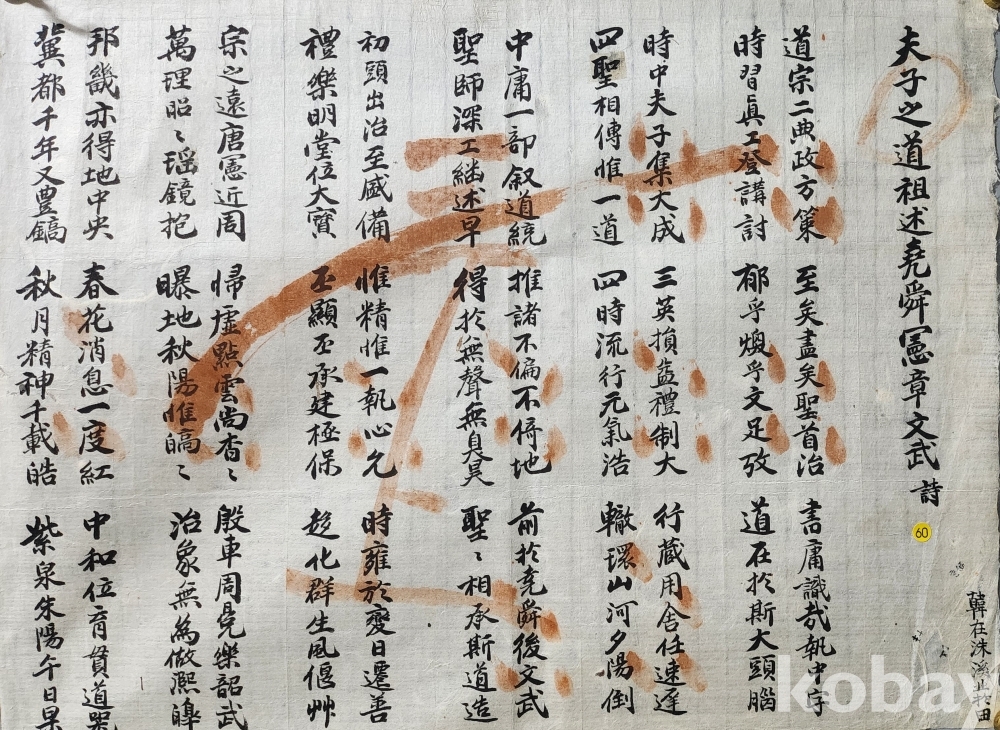 夫子之道祖述堯舜憲章文武 詩
道宗二典政方策 至矣盡矣聖首治 書庸識哉執中字
時習眞工登講討 郁乎煥乎文足攷 道在於斯大頭腦
時中夫子集大成 三英損益禮制大 行藏用舍任速遲
四聖相傳惟一道 四時流行元氣浩 轍環山河夕陽倒
中庸一部叙道統 推諸不偏不倚地 前於堯舜後文武
聖師深工繼述早 得於無聲無臭昊 聖〻相承斯道造
初頭出治至盛備 惟精惟一執心允 時雍於變日遷善
禮樂明堂位大寶 丕顯丕承建極保 趍化群生風偃艸
宗之遠唐憲近周 歸墟點雲尚杳〻 殷車周冕樂韶武
萬理昭〻瑶鏡抱 曝地秋陽惟皜〻 治象無為做凞皥
邦畿亦得地中央 春花消息一度紅 中和位育貫道器
冀都千年又豊鎬 秋月精神千載皓 紫泉朱陽午日杲
60
韓在洙
kobay